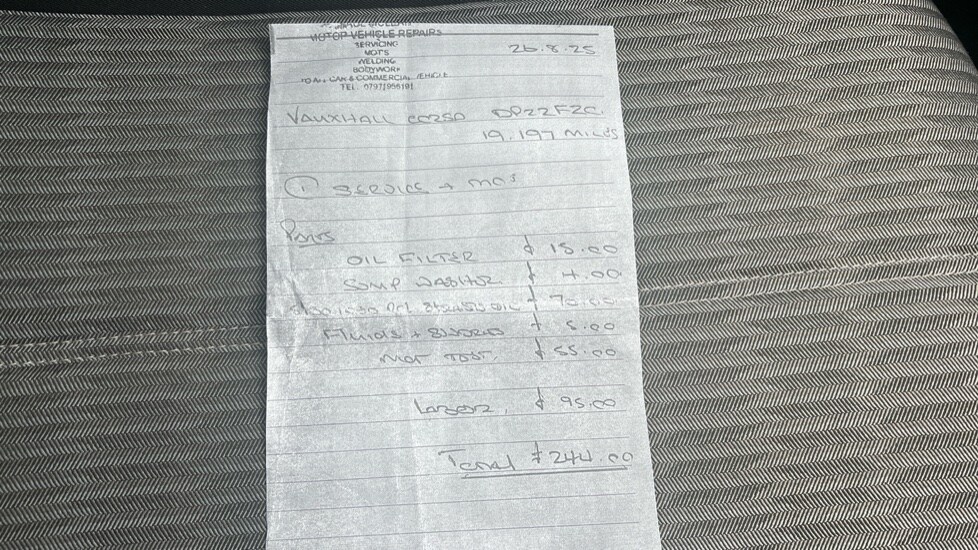 MOTOR VEHICLE REPAIRS
SERVICING
MOT'S
WELDING
BODYWORK
TO ALL CAR & COMMERCIAL VEHICLE
TEL: 07971956191
26.8.25
VAUXHALL CORSA DP22FZC
19.197 MILES
① SERVICE + MOT
PARTS
OIL FILTER £ 15.00
SUMP WASHER £ 4.00
OIL £ 70.00
Fluids + £ 5.00
MOT TEST. £ 55.00
LABOUR, £ 95.00
Total £ 244.00